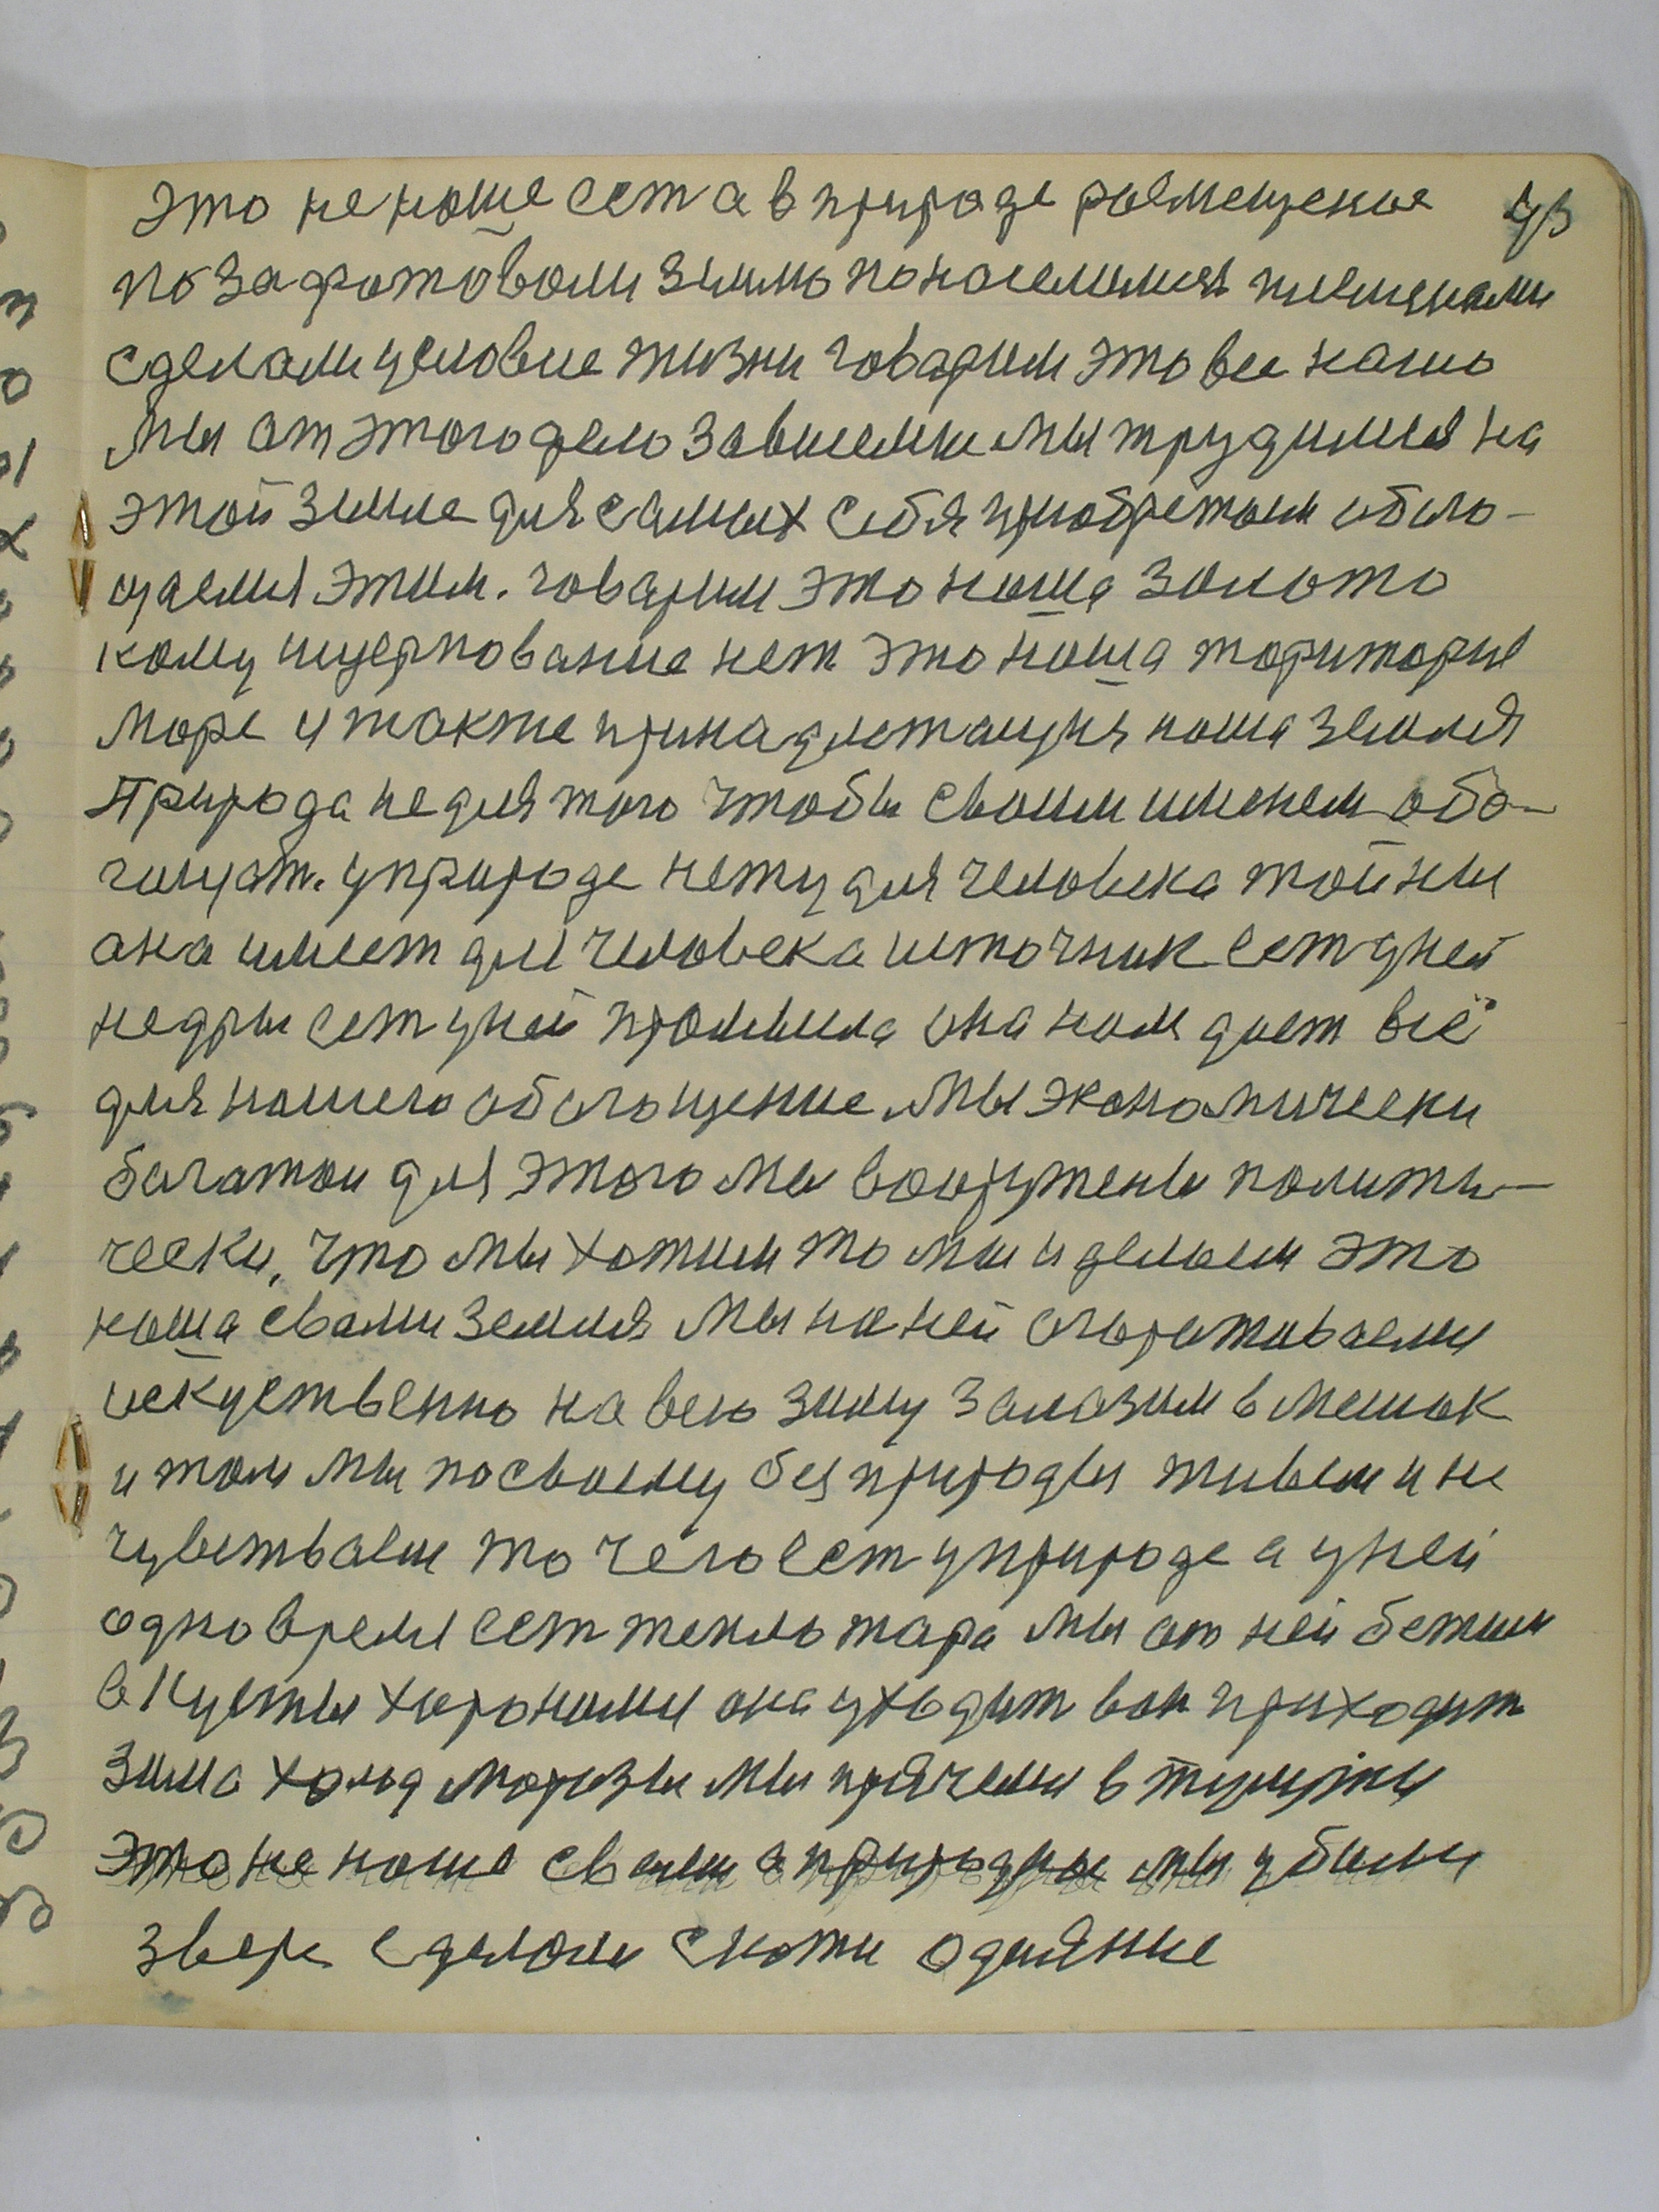 это не наше ест а в природе размещение 43
по захватовали землю понаселились племенами
сделали условие жизни говорим это все нашо
мы от этого дело зависеми мы трудимся на
этой земле для самых себя приобретаем обога-
щаемся этим. говорим это наша золото
кому ищерпование нет это наша ториторие
море и также принадлежащия наша земля
Природа не для того чтобы своим именем обо-
гащат. у природе нету для человека тойны
она имеет для человека источник ест у ней
недры ест у ней промысла она нам дает всё
для нашего обогощение мы экономически
богатои для этого мы вооружены полити-
чески, что мы хотим то мы и делаем это
наша свами земля мы на ней огораживаеми
искуственно на всю зиму залазим в мешок
и там мы посвоему без природы живем и не
чувствоем то чего ест у природе а у ней
одно время ест тепло жара мы от ней бежим
в кусты хоронимся она уходит вон приходит
зима холод морозы мы прячеми в тулупы
это не наше свами а природнае мы убили
зверя сделали с кожи одияние